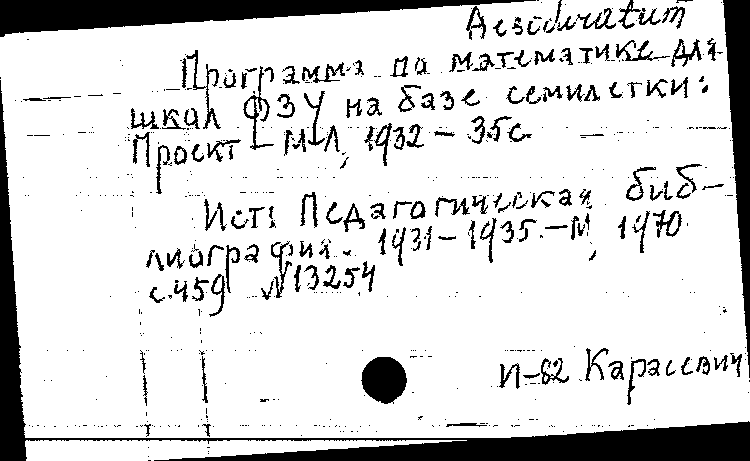 Desiduratum
Программа по математике для
школ ФЗУ на базе семилетки:
Проект – М-Л, 1932 – 35с.
Ист: Педагогическая биб-
лиография. 1931–1935.–М, 1970
с.459 №13254
И-82 Карасевич